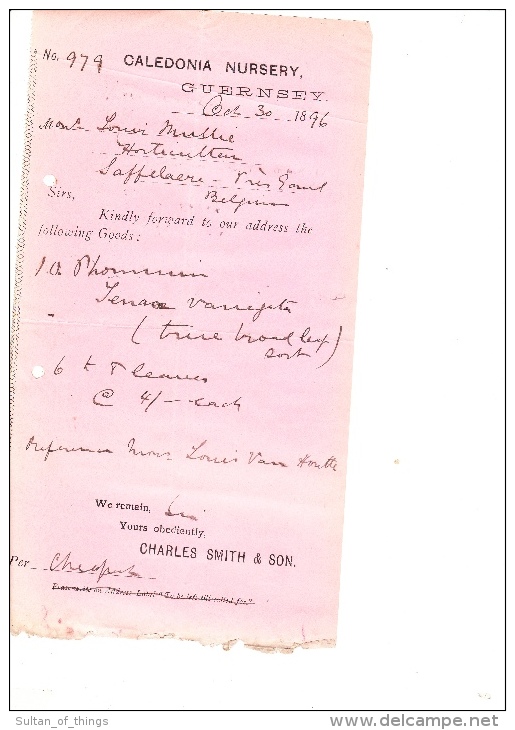 No. 979 CALEDONIA NURSERY,
GUERNSEY.
Oct 30 1896
Monsr Louis
Saffelaere - Près Gand
Belgium
Sirs,
Kindly forward to our address the
following Goods:
10 Phormium
Tenax
( broad leaf )
sort
6 t 8 leaves
@ 4/- each
Reference Monsr Louis Van Houtte
We remain,
Yours obediently,
CHARLES SMITH & SON.
Per
Sultan_of_things
www.delcampe.net